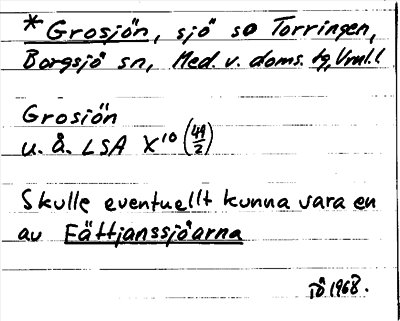 *Grosjön, sjö so Torringen,
Borgsjö sn, Med. v. doms. tg, Vnl. l
Grosiön
u. å. LSA X¹⁰ (49/2)
Skulle eventuellt kunna vara en
av Fättjanssjöarna
1968.